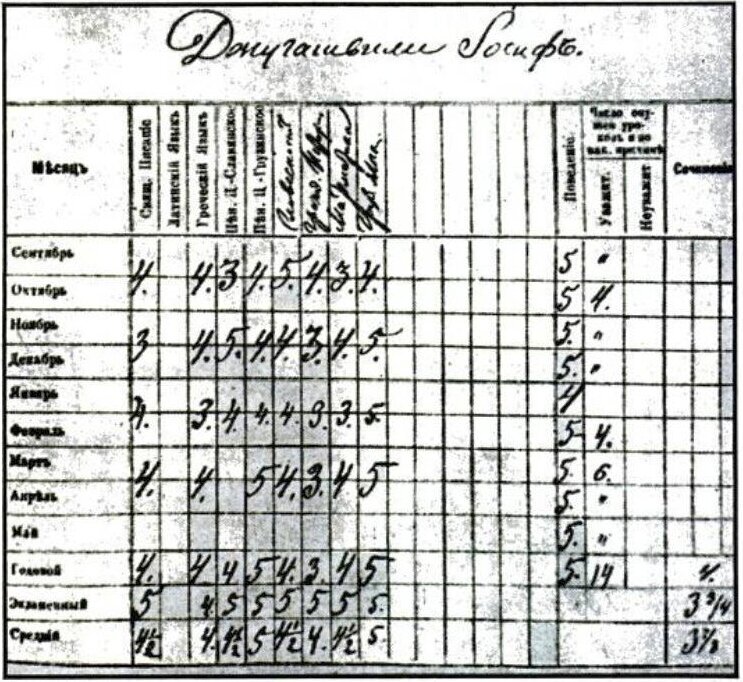 Джугашвили Іосифъ.
Мѣсяцъ Свящ. Писаніе Латинскій Языкъ Греческій Языкъ Пѣн. Ц.-Славянское Пѣн. Ц.-Грузинское Поведеніе Число опущен. уроковъ и по как. причинѣ Уважит. Неуважит. Сочиненія
Сентябрь 4. 4. 3 4. 5. 4. 3. 4. 5 "
Октябрь 5 4.
Ноябрь 3 4. 5. 4. 4. 3. 4. 5. 5. "
Декабрь 5. "
Январь 4. 3. 4 4. 4. 3. 3. 5. 4
Февраль 5 4.
Мартъ 4. 4. 5 4. 3. 4 5 5. 6.
Апрѣль 5. "
Май 5. "
Годовой 4. 4 4 5 4. 3. 4 5 5. 14
Экзаменный 5 4. 5 5 5 5 5 5. 3 3/4
Средній 4½ 4. 4½ 5 4½ 4. 4½ 5.